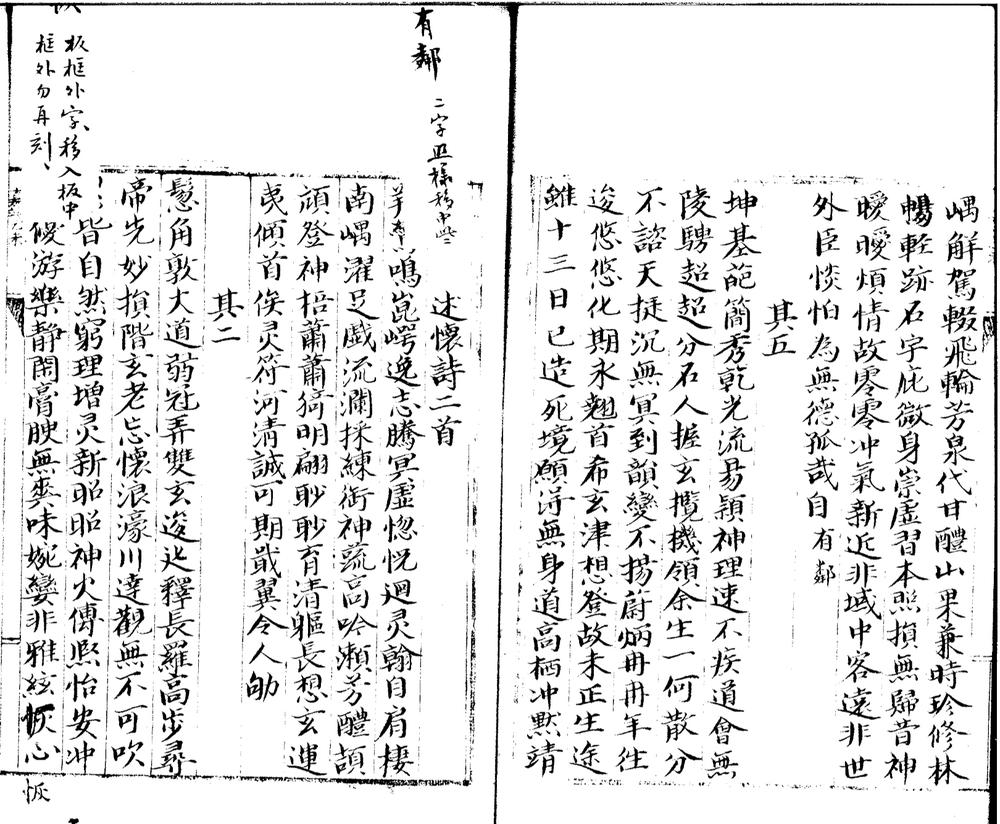 嵎解駕輟飛輪芳泉代甘醴山果兼時珍修林
暢輕跡石宇庇微身崇虛習本照損無歸昔神
曖曖煩情故零零冲氣新近非域中客遠非世
外臣惔怕為無德孤哉自有鄰
其五
坤基葩簡秀乾光流易穎神理速不疾道會無
陵騁超超分石人握玄攬機領余生一何散分
不諮天挺沉無冥到韻變不揚蔚炳冉冉年往
逡悠悠化期永翹首希玄津想登故未正生途
雖十三日已造死境願得無身道高栖冲默靖
有鄰
二字照樣移中些
述懷詩二首
鳴崑崿逸志騰冥虛惚恍迴灵翰自肩棲
南嵎濯足戲流瀾採練銜神蔬高吟漱芳醴頡
頏登神梧蕭蕭猗明翮眇眇育清軀長想玄運
夷傾首俟灵符河清誠可期戢翼令人劬
其二
髫角敦大道弱冠弄雙玄逡辵釋長羅高步尋
帝先妙損階玄老忘懷浪濠川達觀無不可吹
皆自然窮理增灵新昭昭神火傳熙怡安冲
優游樂靜閑膏腴無爽味婉孌非雅絃恢心
板框外字移入板中
框外勿再刻
恢